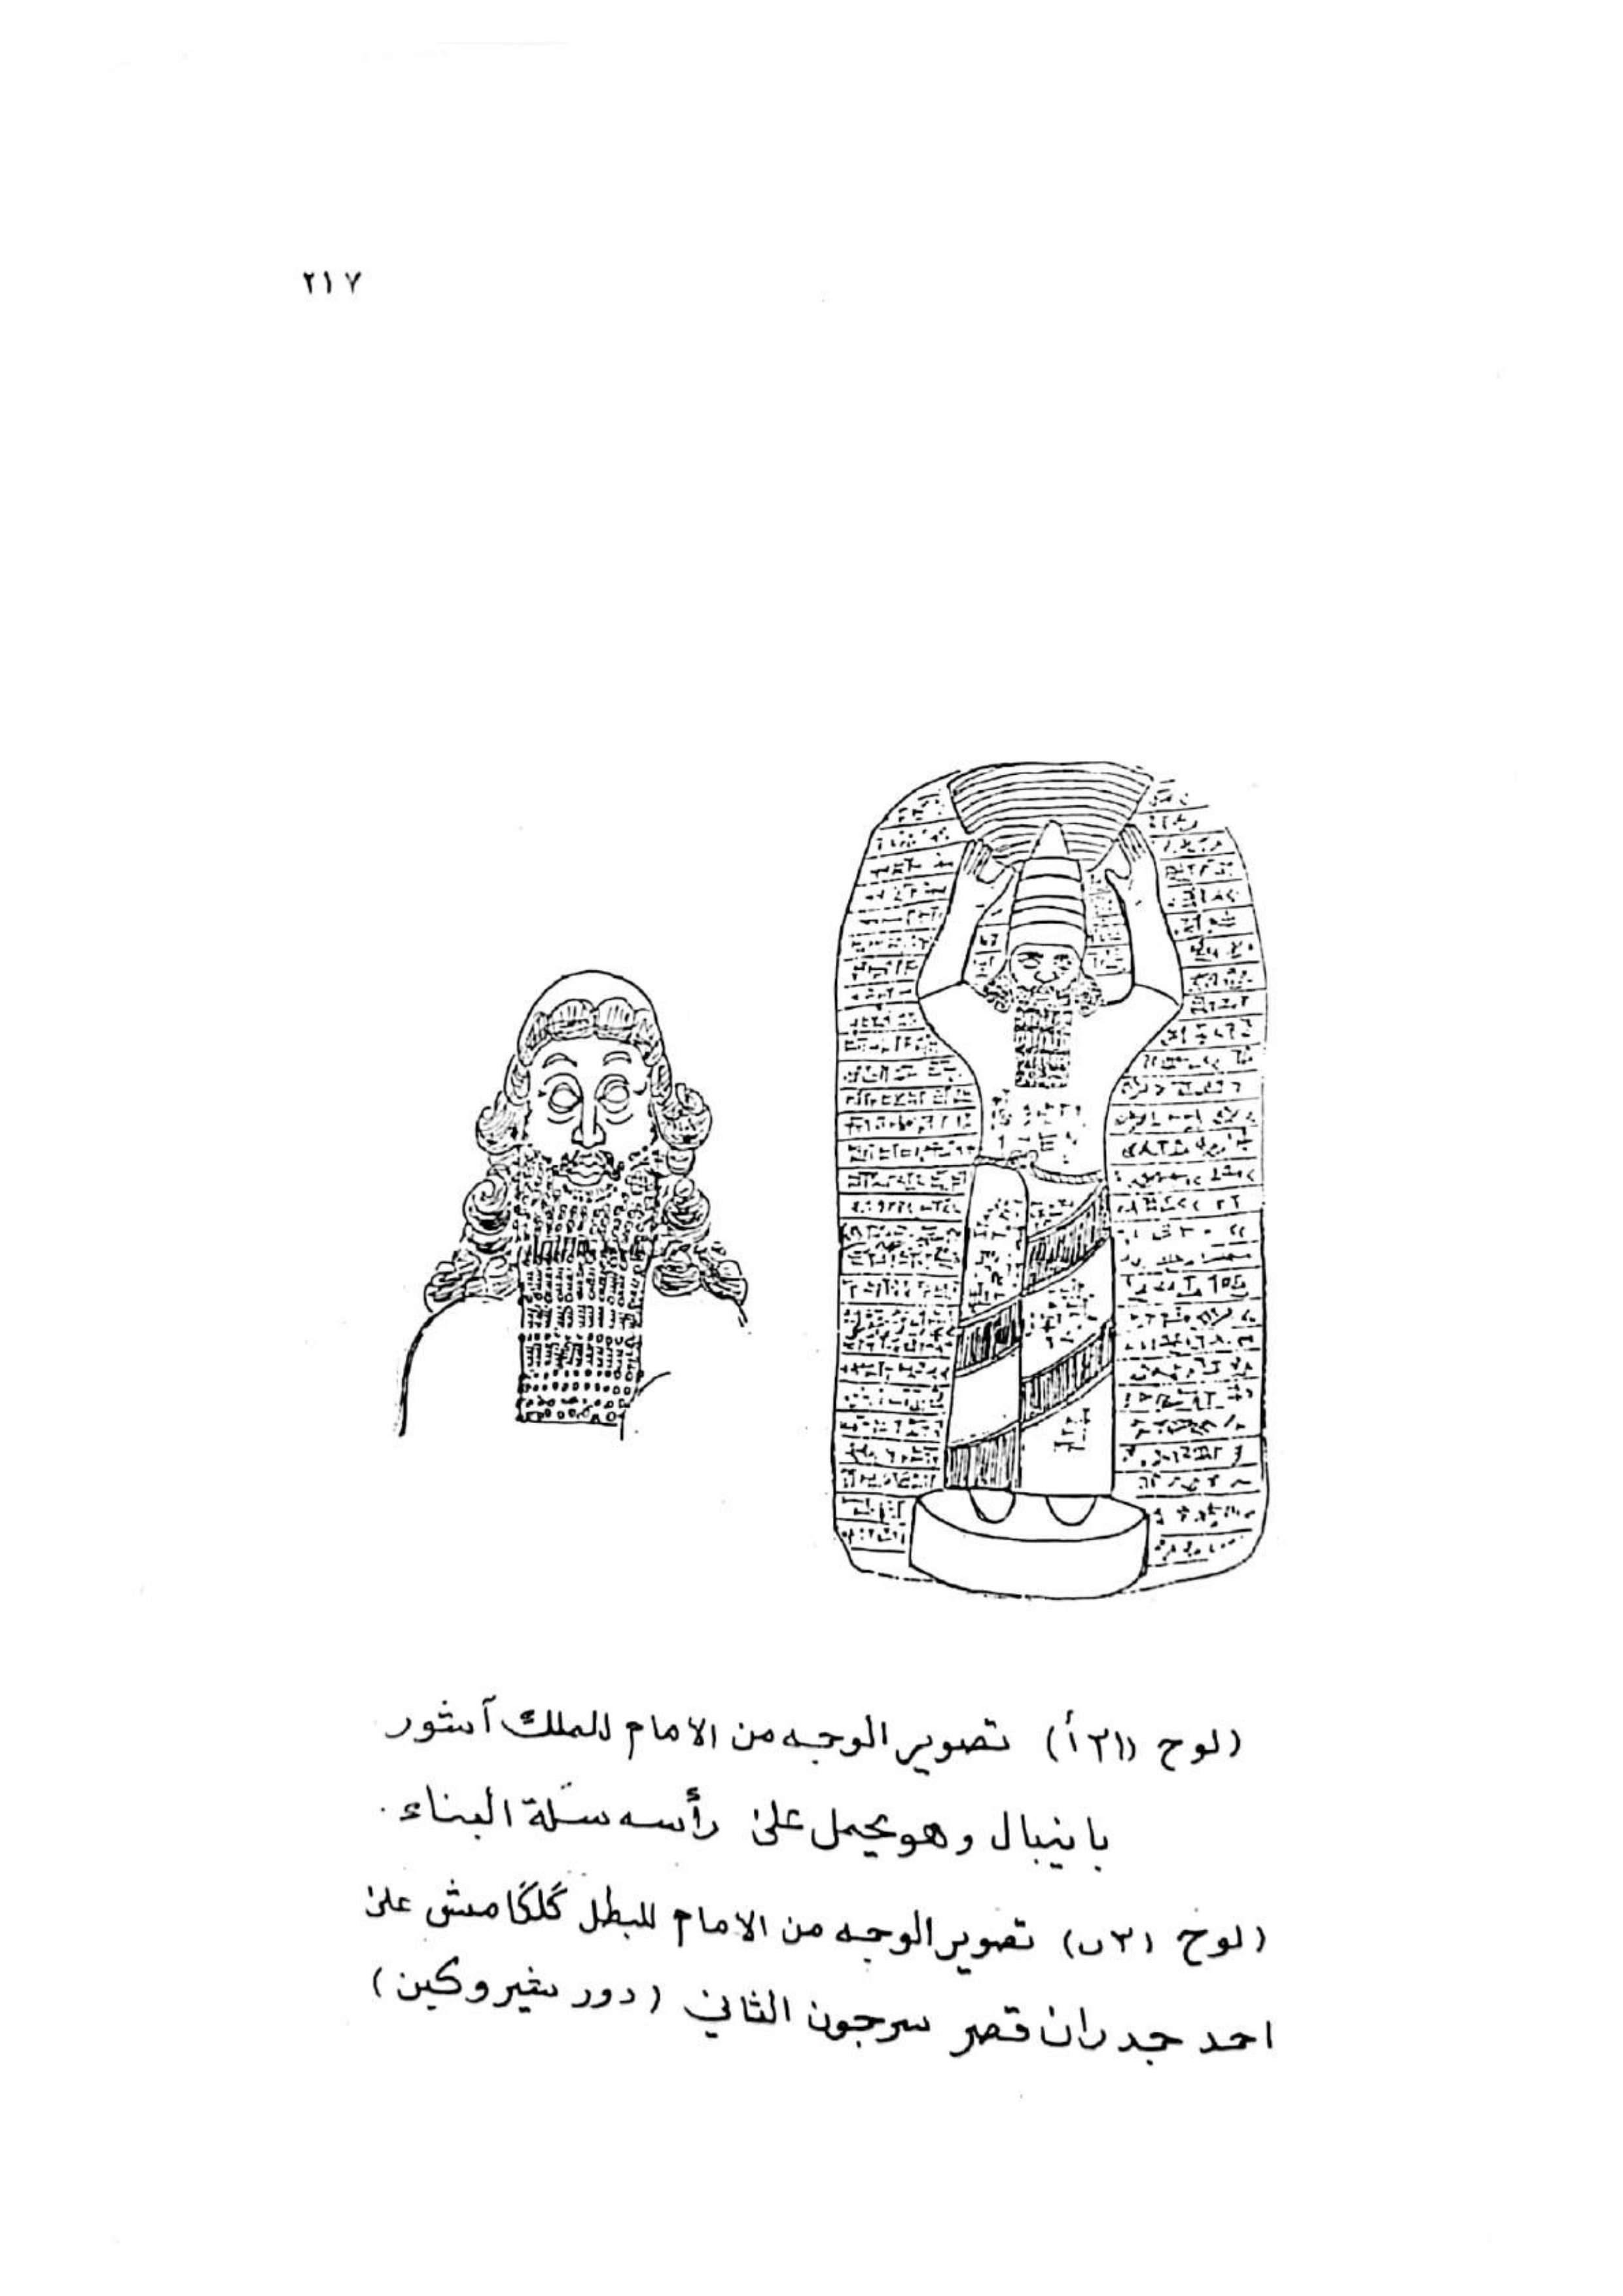 ٢١٧
(لوح ٣١أ) تصوير الوجه من الامام للملك آشور
بانيبال وهو يحمل على رأسه سلّة البناء.
(لوح ٣١ب) تصوير الوجه من الامام للبطل گلگامش على
احد جدران قصر سرجون الثاني (دور شيروكين)